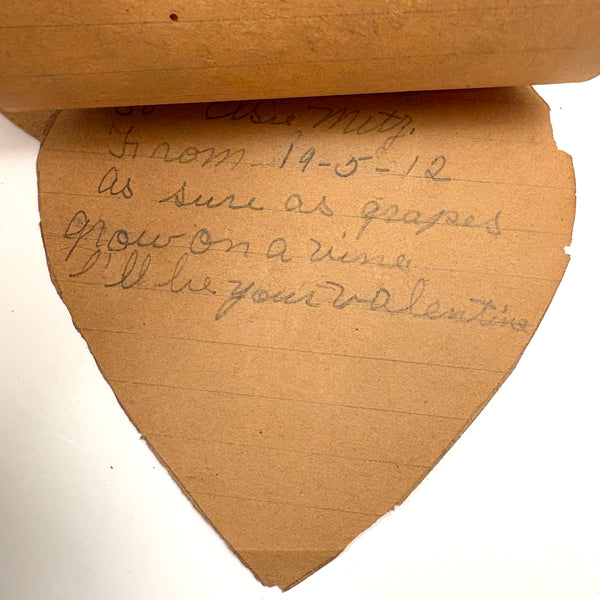 To Elsie Metz.
From 19-5-12
As sure as grapes
grow on a vine
I'll be your valentine